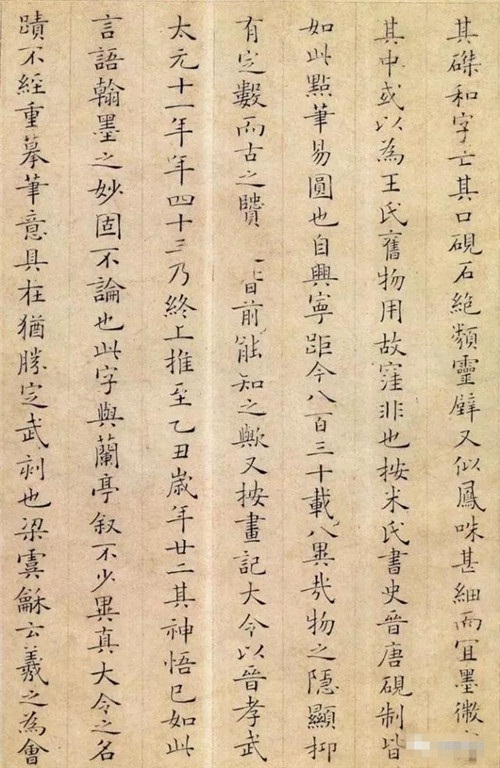 其磔和字亡其口硯石絶類靈壁又似鳳咮甚細而宜墨微
其中或以為王氏舊物用故窪非也按米氏書史晉唐硯制皆
如此點筆易圓也自興寧距今八百三十載八異哉物之隱顯抑
有定數而古之賢前能知之歟又按畫記大令以晉孝武
太元十一年年四十三乃終上推至乙丑歲年廿二其神悟已如此
言語翰墨之妙固不論也此字與蘭亭叙不少異真大令之名
蹟不經重摹筆意具在猶勝定武刻也梁虞龢云羲之為會